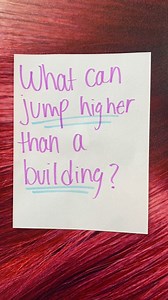 What can
jump higher
than a
building?